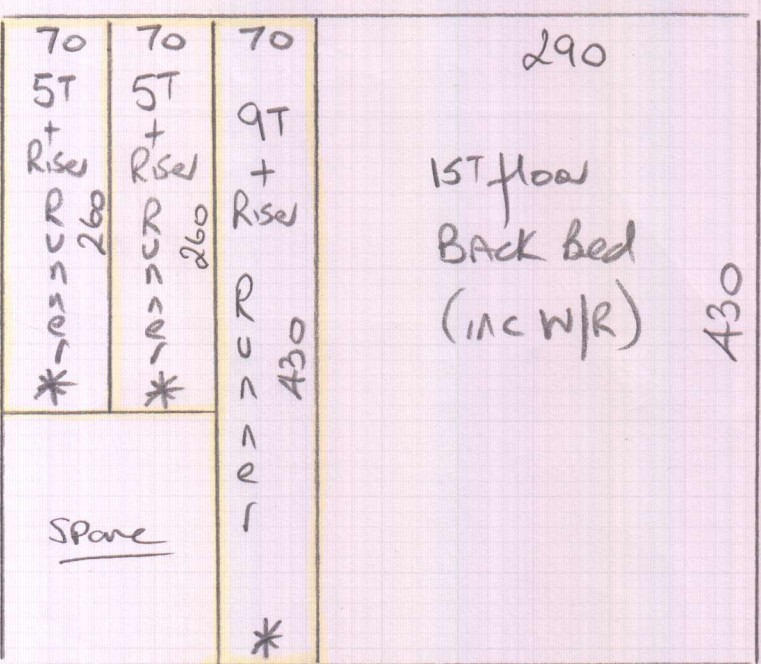 70
5T
+
Riser
Runner
260
*
70
5T
+
Riser
Runner
260
*
70
9T
+
Riser
Runner
430
*
290
1ST floor
BACK Bed
(inc W/R)
430
Spare